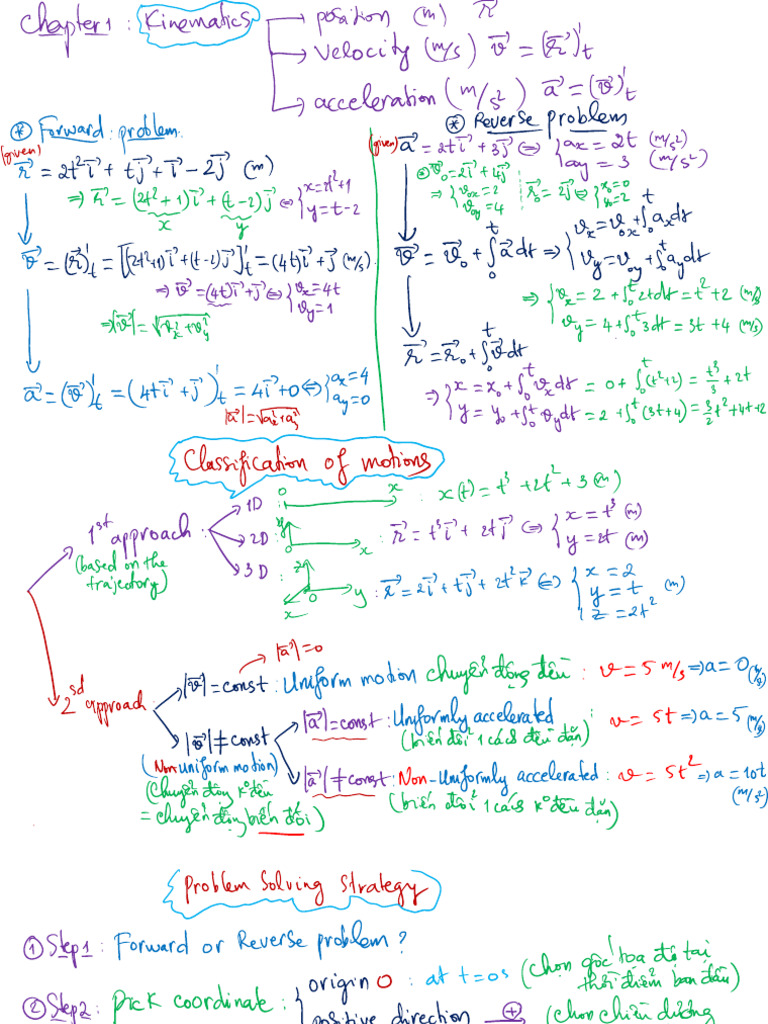 Chapter 1 : Kinematics
position (m) r⃗
velocity (m/s) v⃗ = (r⃗)'t
acceleration (m/s²) a⃗ = (v⃗)'t
⊛ Forward problem:
(given) r⃗ = 2t² i⃗ + t j⃗ + i⃗ - 2 j⃗ (m)
⇒ r⃗ = (2t²+1) i⃗ + (t-2) j⃗ ⇔ { x = 2t²+1
y = t-2
x y
v⃗ = (r⃗)'t = [(2t²+1) i⃗ + (t-2) j⃗]'t = (4t) i⃗ + j⃗ (m/s).
⇒ v⃗ = (4t) i⃗ + j⃗ ⇔ { vx = 4t
vy = 1
⇒ |v⃗| = √(vx² + vy²)
a⃗ = (v⃗)'t = (4t i⃗ + j⃗)'t = 4 i⃗ + 0 ⇔ { ax = 4
ay = 0
|a⃗| = √(ax² + ay²)
⊛ Reverse problem
(given) a⃗ = 2t i⃗ + 3 j⃗ ⇔ { ax = 2t (m/s²)
ay = 3 (m/s²)
v⃗0 = 2 i⃗ + 4 j⃗
⇒ { v0x = 2
v0y = 4
r⃗0 = 2 j⃗ ⇔ { x0 = 0
y0 = 2
v⃗ = v⃗0 + ∫0^t a⃗ dt ⇒ { vx = v0x + ∫0^t ax dt
vy = v0y + ∫0^t ay dt
⇒ { vx = 2 + ∫0^t 2t dt = t² + 2 (m/s)
vy = 4 + ∫0^t 3dt = 3t + 4 (m/s)
r⃗ = r⃗0 + ∫0^t v⃗ dt
⇒ { x = x0 + ∫0^t vx dt = 0 + ∫0^t (t²+2) = t³/3 + 2t
y = y0 + ∫0^t vy dt = 2 + ∫0^t (3t+4) = 3/2 t² + 4t + 2
Classification of motions
1st approach :
(based on the
trajectory)
1D : 0 x : x(t) = t³ + 2t² + 3 (m)
2D : y 0 x : r⃗ = t³ i⃗ + 2t j⃗ ⇔ { x = t³ (m)
y = 2t (m)
3D : z 0 y x : r⃗ = 2 i⃗ + t j⃗ + 2t² k⃗ ⇔ { x = 2
y = t (m)
z = 2t²
2sd approach
|a⃗| = 0
|v⃗| = const : Uniform motion chuyển động đều : v = 5 m/s ⇒ a = 0 (m/s²)
|v⃗| ≠ const
(Non uniform motion)
(chuyển động ko đều
= chuyển động biến đổi)
|a⃗| = const : Uniformly accelerated : v = 5t ⇒ a = 5 (m/s²)
(biến đổi 1 cách đều đặn)
|a⃗| ≠ const : Non-Uniformly accelerated : v = 5t² ⇒ a = 10t (m/s²)
(biến đổi 1 cách ko đều đặn)
Problem Solving Strategy
① Step 1 : Forward or Reverse problem ?
② Step 2 : Pick coordinate : { origin 0 : at t = 0s (chọn gốc toạ độ tại
thời điểm ban đầu)
positive direction ⊕ (chọn chiều dương